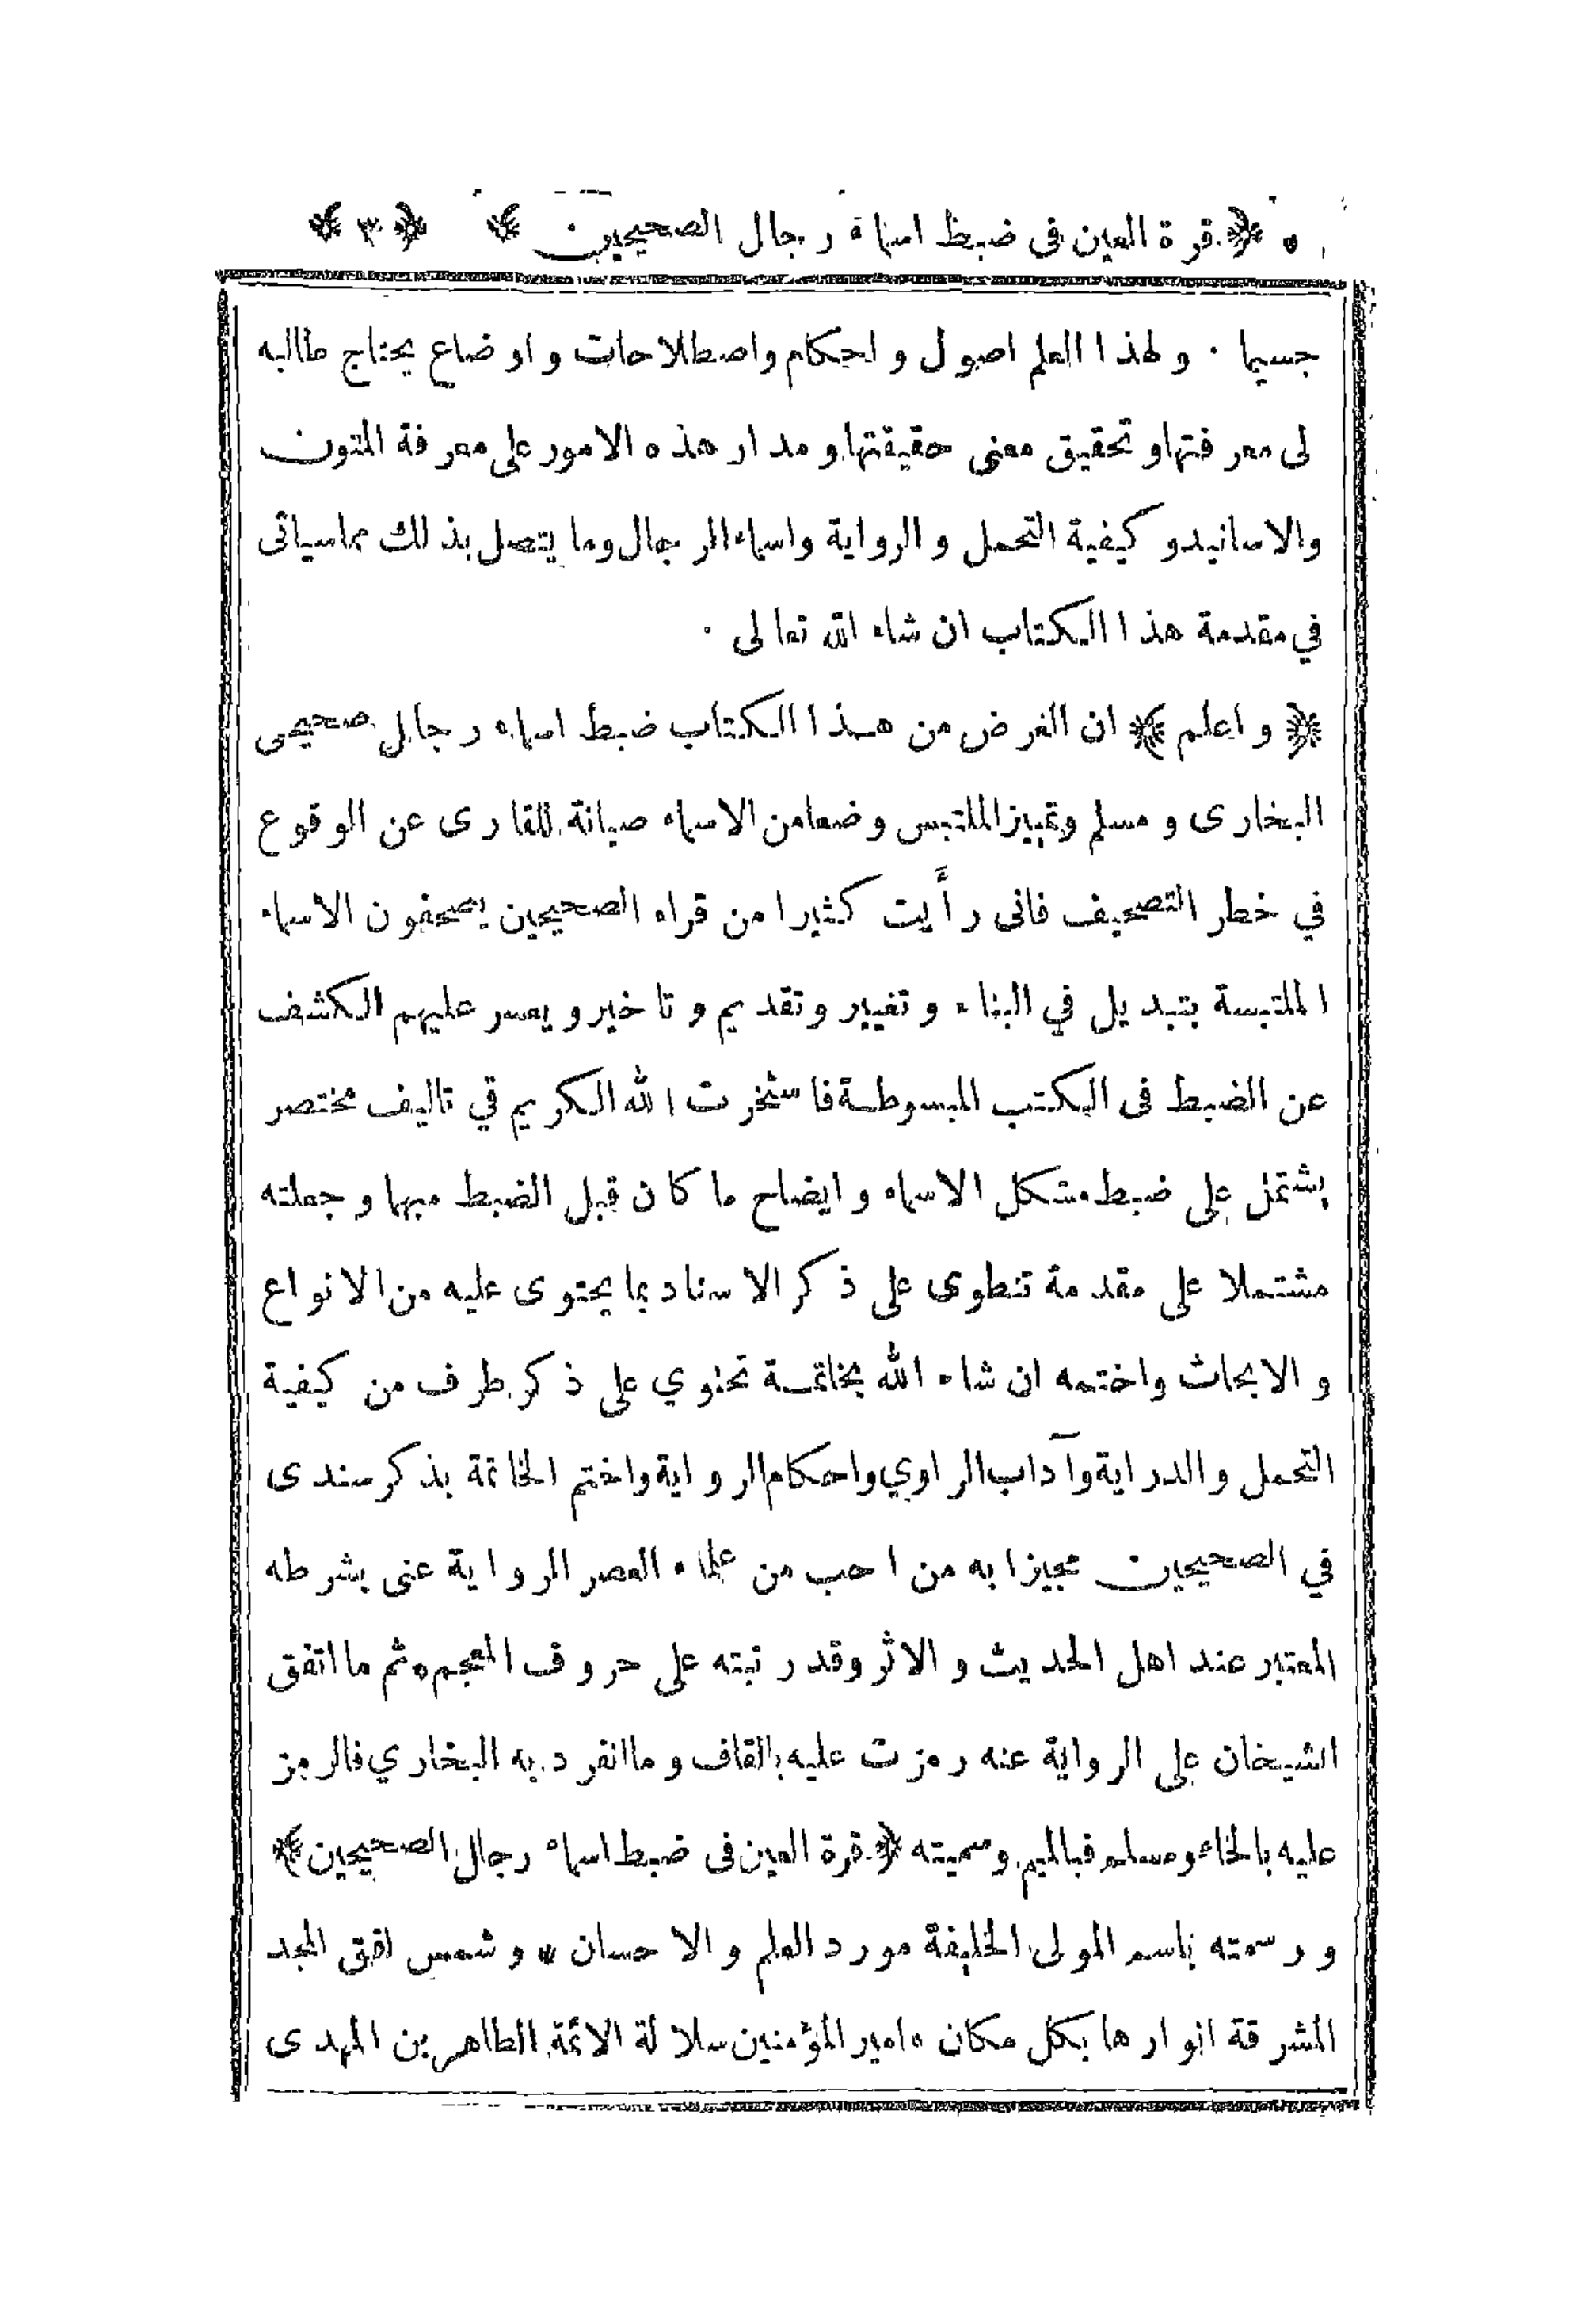 ﴿ قرة العين فى ضبط اسماء رجال الصحيحين ﴾ ﴿ ٣ ﴾
جسيما . ولهذا العلم اصول و احكام واصطلاحات و اوضاع يحتاج طالبه
لى معرفتها وتحقيق معنى حقيقتها ومدار هذه الامور على معرفة المتون
والاسانيد و كيفية التحمل و الرواية واسماء الرجال وما يتصل بذلك مماسياتى
في مقدمة هذا الكتاب ان شاء الله تعالى .
﴿ واعلم ﴾ ان الغرض من هذا الكتاب ضبط اسماء رجال صحيحى
البخارى و مسلم وتمييز الملتبس وضعا من الاسماء صيانة للقارى عن الوقوع
في خطر التصحيف فانى رأيت كثيرا من قراء الصحيحين يصحفون الاسماء
الملتبسة بتبديل في البناء و تغيير وتقديم و تاخير و يعسر عليهم الكشف
عن الضبط فى الكتب المبسوطة فاستخرت الله الكريم في تاليف مختصر
يشتمل على ضبط مشكل الاسماء و ايضاح ما كان قبل الضبط مبهما و جعلته
مشتملا على مقدمة تنطوى على ذكر الاسناد بما يحتوى عليه من الانواع
و الابحاث واختمه ان شاء الله بخاتمة تحتوي على ذكر طرف من كيفية
التحمل والدراية وآداب الراوي واحكام الرواية واختم الخاتمة بذكر سندى
في الصحيحين مجيزا به من احب من علماء العصر الرواية عنى بشرطه
المعتبر عند اهل الحديث و الاثر وقد رتبته على حروف المعجم ٥ ثم ما اتفق
الشيخان على الرواية عنه رمزت عليه بالقاف و ما انفرد به البخاري فالرمز
عليه بالخاء ومسلم فبالميم وسميته ﴿ قرة العين فى ضبط اسماء رجال الصحيحين ﴾
و رسمته باسم المولى الخليفة مورد العلم و الاحسان * و شمس افق المجد
المشرقة انوارها بكل مكان ٥ امير المؤمنين سلالة الائمة الطاهرين المهدى